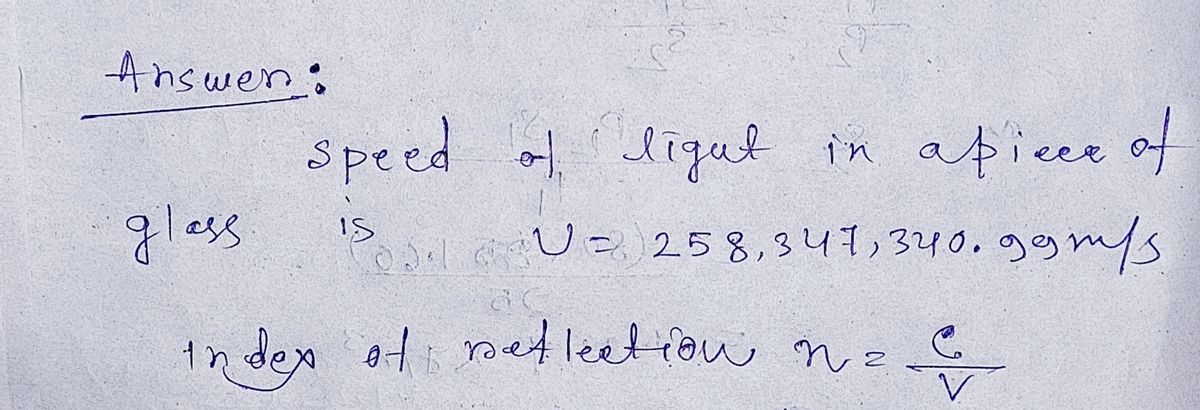 Answer:
speed of light in a piece of
glass is V = 258,347,340.99 m/s
index of reflection n = C/V